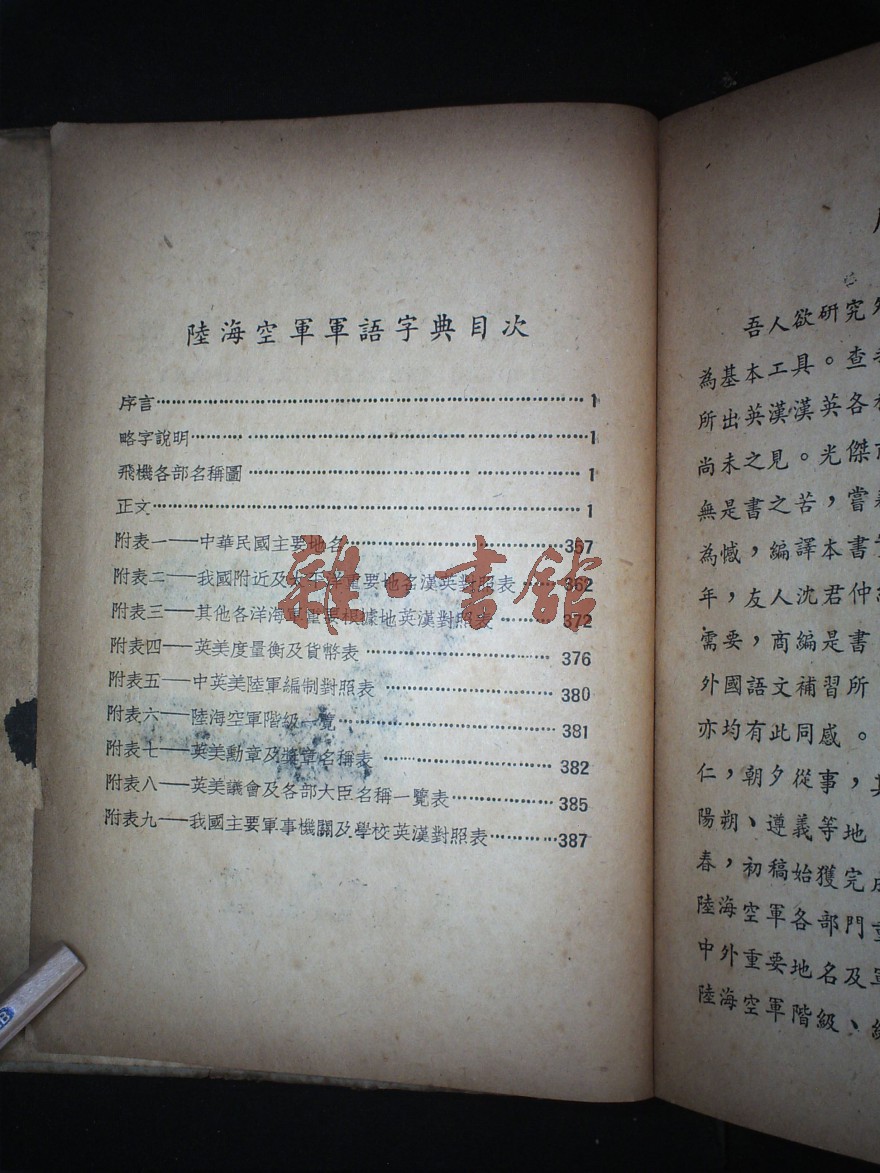 陸海空軍軍語字典目次
序言 1
略字說明 1
飛機各部名稱圖 1
正文 1
附表一——中華民國主要地名 357
附表二——我國附近及太平洋重要地名漢英對照表 362
附表三——其他各洋海軍重要根據地英漢對照表 372
附表四——英美度量衡及貨幣表 376
附表五——中英美陸軍編制對照表 380
附表六——陸海空軍階級一覽 381
附表七——英美勳章及獎章名稱表 382
附表八——英美議會及各部大臣名稱一覽表 385
附表九——我國主要軍事機關及學校英漢對照表 387
雜·書館
吾人欲研究
為基本工具。查
所出英漢漢英各
尚未之見。光傑
無是書之苦，嘗
為憾，編譯本書
年，友人沈君仲
需要，商編是書
外國語文補習所
亦均有此同感。
仁，朝夕從事，
陽朔、遵義等地
春，初稿始獲完成
陸海空軍各部門
中外重要地名及
陸海空軍階級、